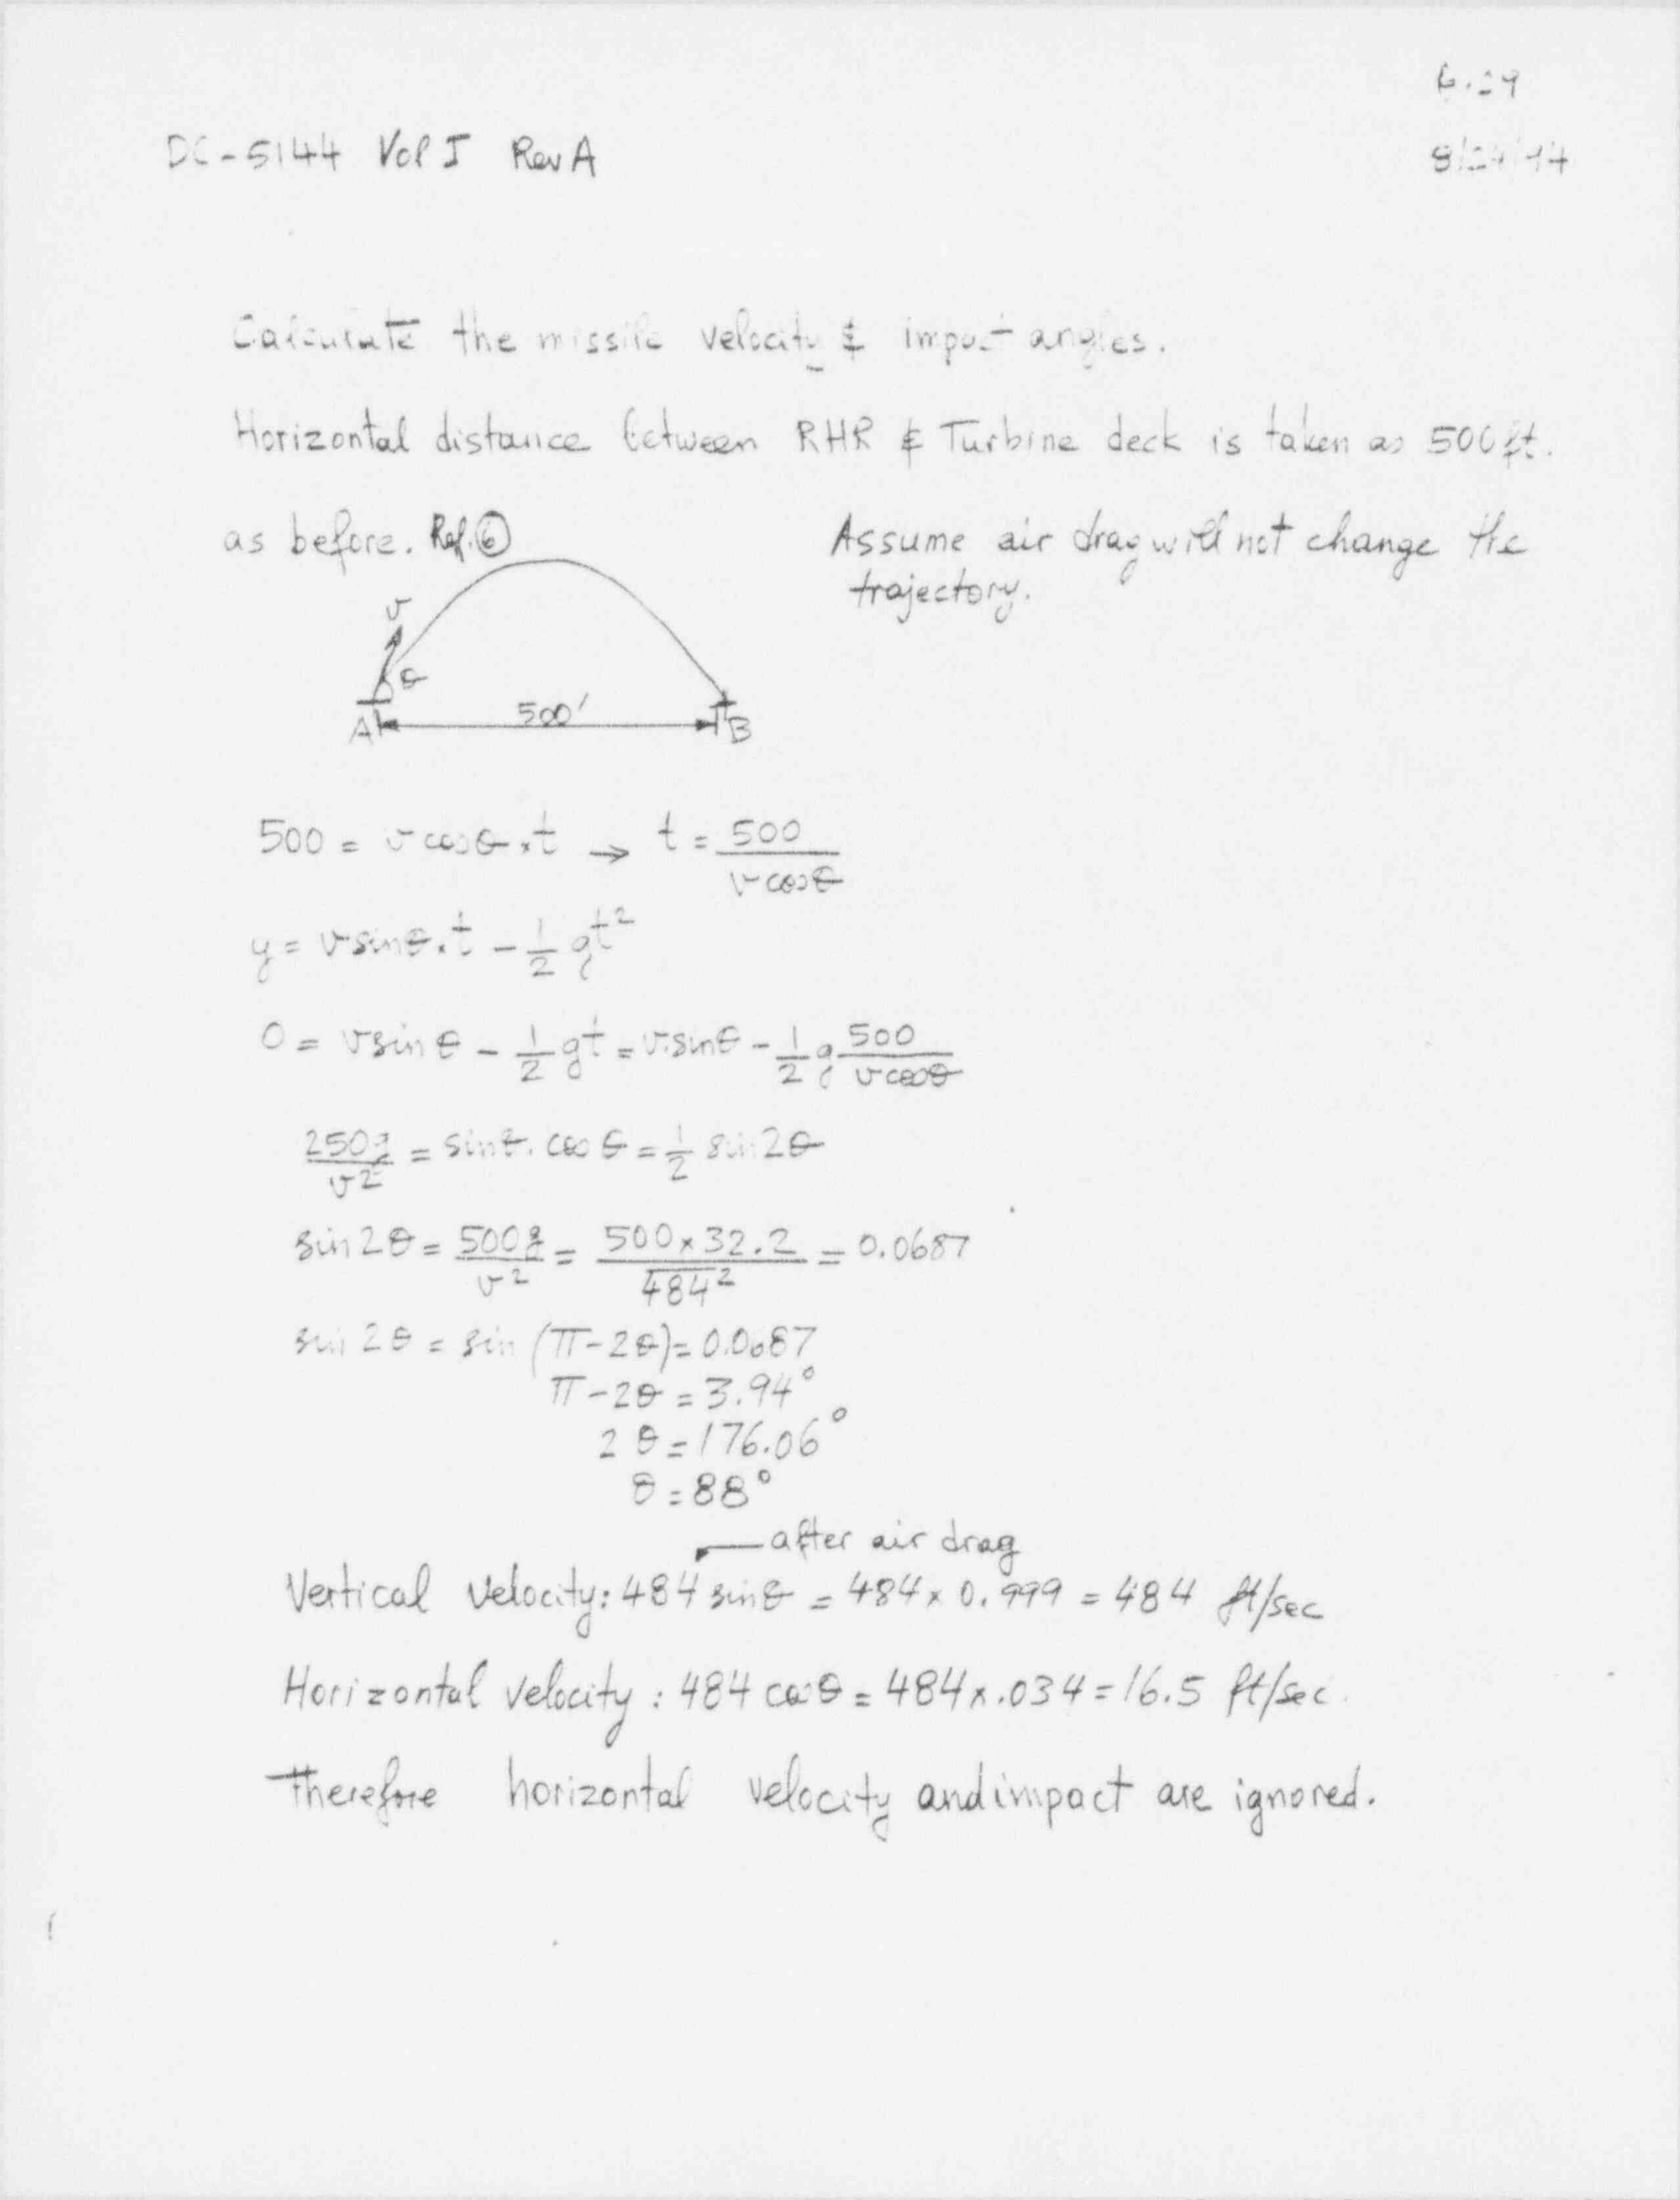 6.29
DC-5144 Vol I Rev A
Calculate the missile velocity & impact angles.
Horizontal distance between RHR & Turbine deck is taken as 500 ft.
as before. Ref. ⑥
Assume air drag will not change the
trajectory.
v
θ
500'
A B
500 = v cosθ × t → t = 500 / v cosθ
y = v sinθ × t - 1/2 gt²
0 = v sin θ - 1/2 gt = v sinθ - 1/2 g 500 / v cosθ
250g / v² = sinθ . cos θ = 1/2 sin 2θ
sin 2θ = 500g / v² = 500 × 32.2 / 484² = 0.0687
sin 2θ = sin (π-2θ) = 0.0687
π-2θ = 3.94°
2 θ = 176.06°
θ = 88°
after air drag
Vertical Velocity: 484 sinθ = 484 × 0.999 = 484 ft/sec
Horizontal velocity : 484 cosθ = 484 × .034 = 16.5 ft/sec.
Therefore horizontal velocity and impact are ignored.